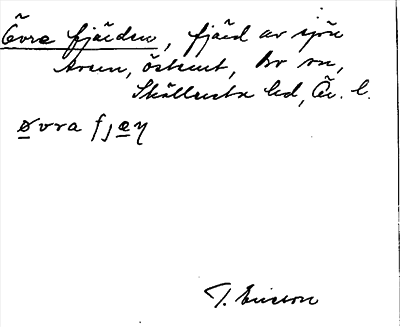 Övre fjärden, fjärd av sjön
östent, Bro sn,
Skällersta hd, Ör. l.
øvra fjæŋ
T. Ericson